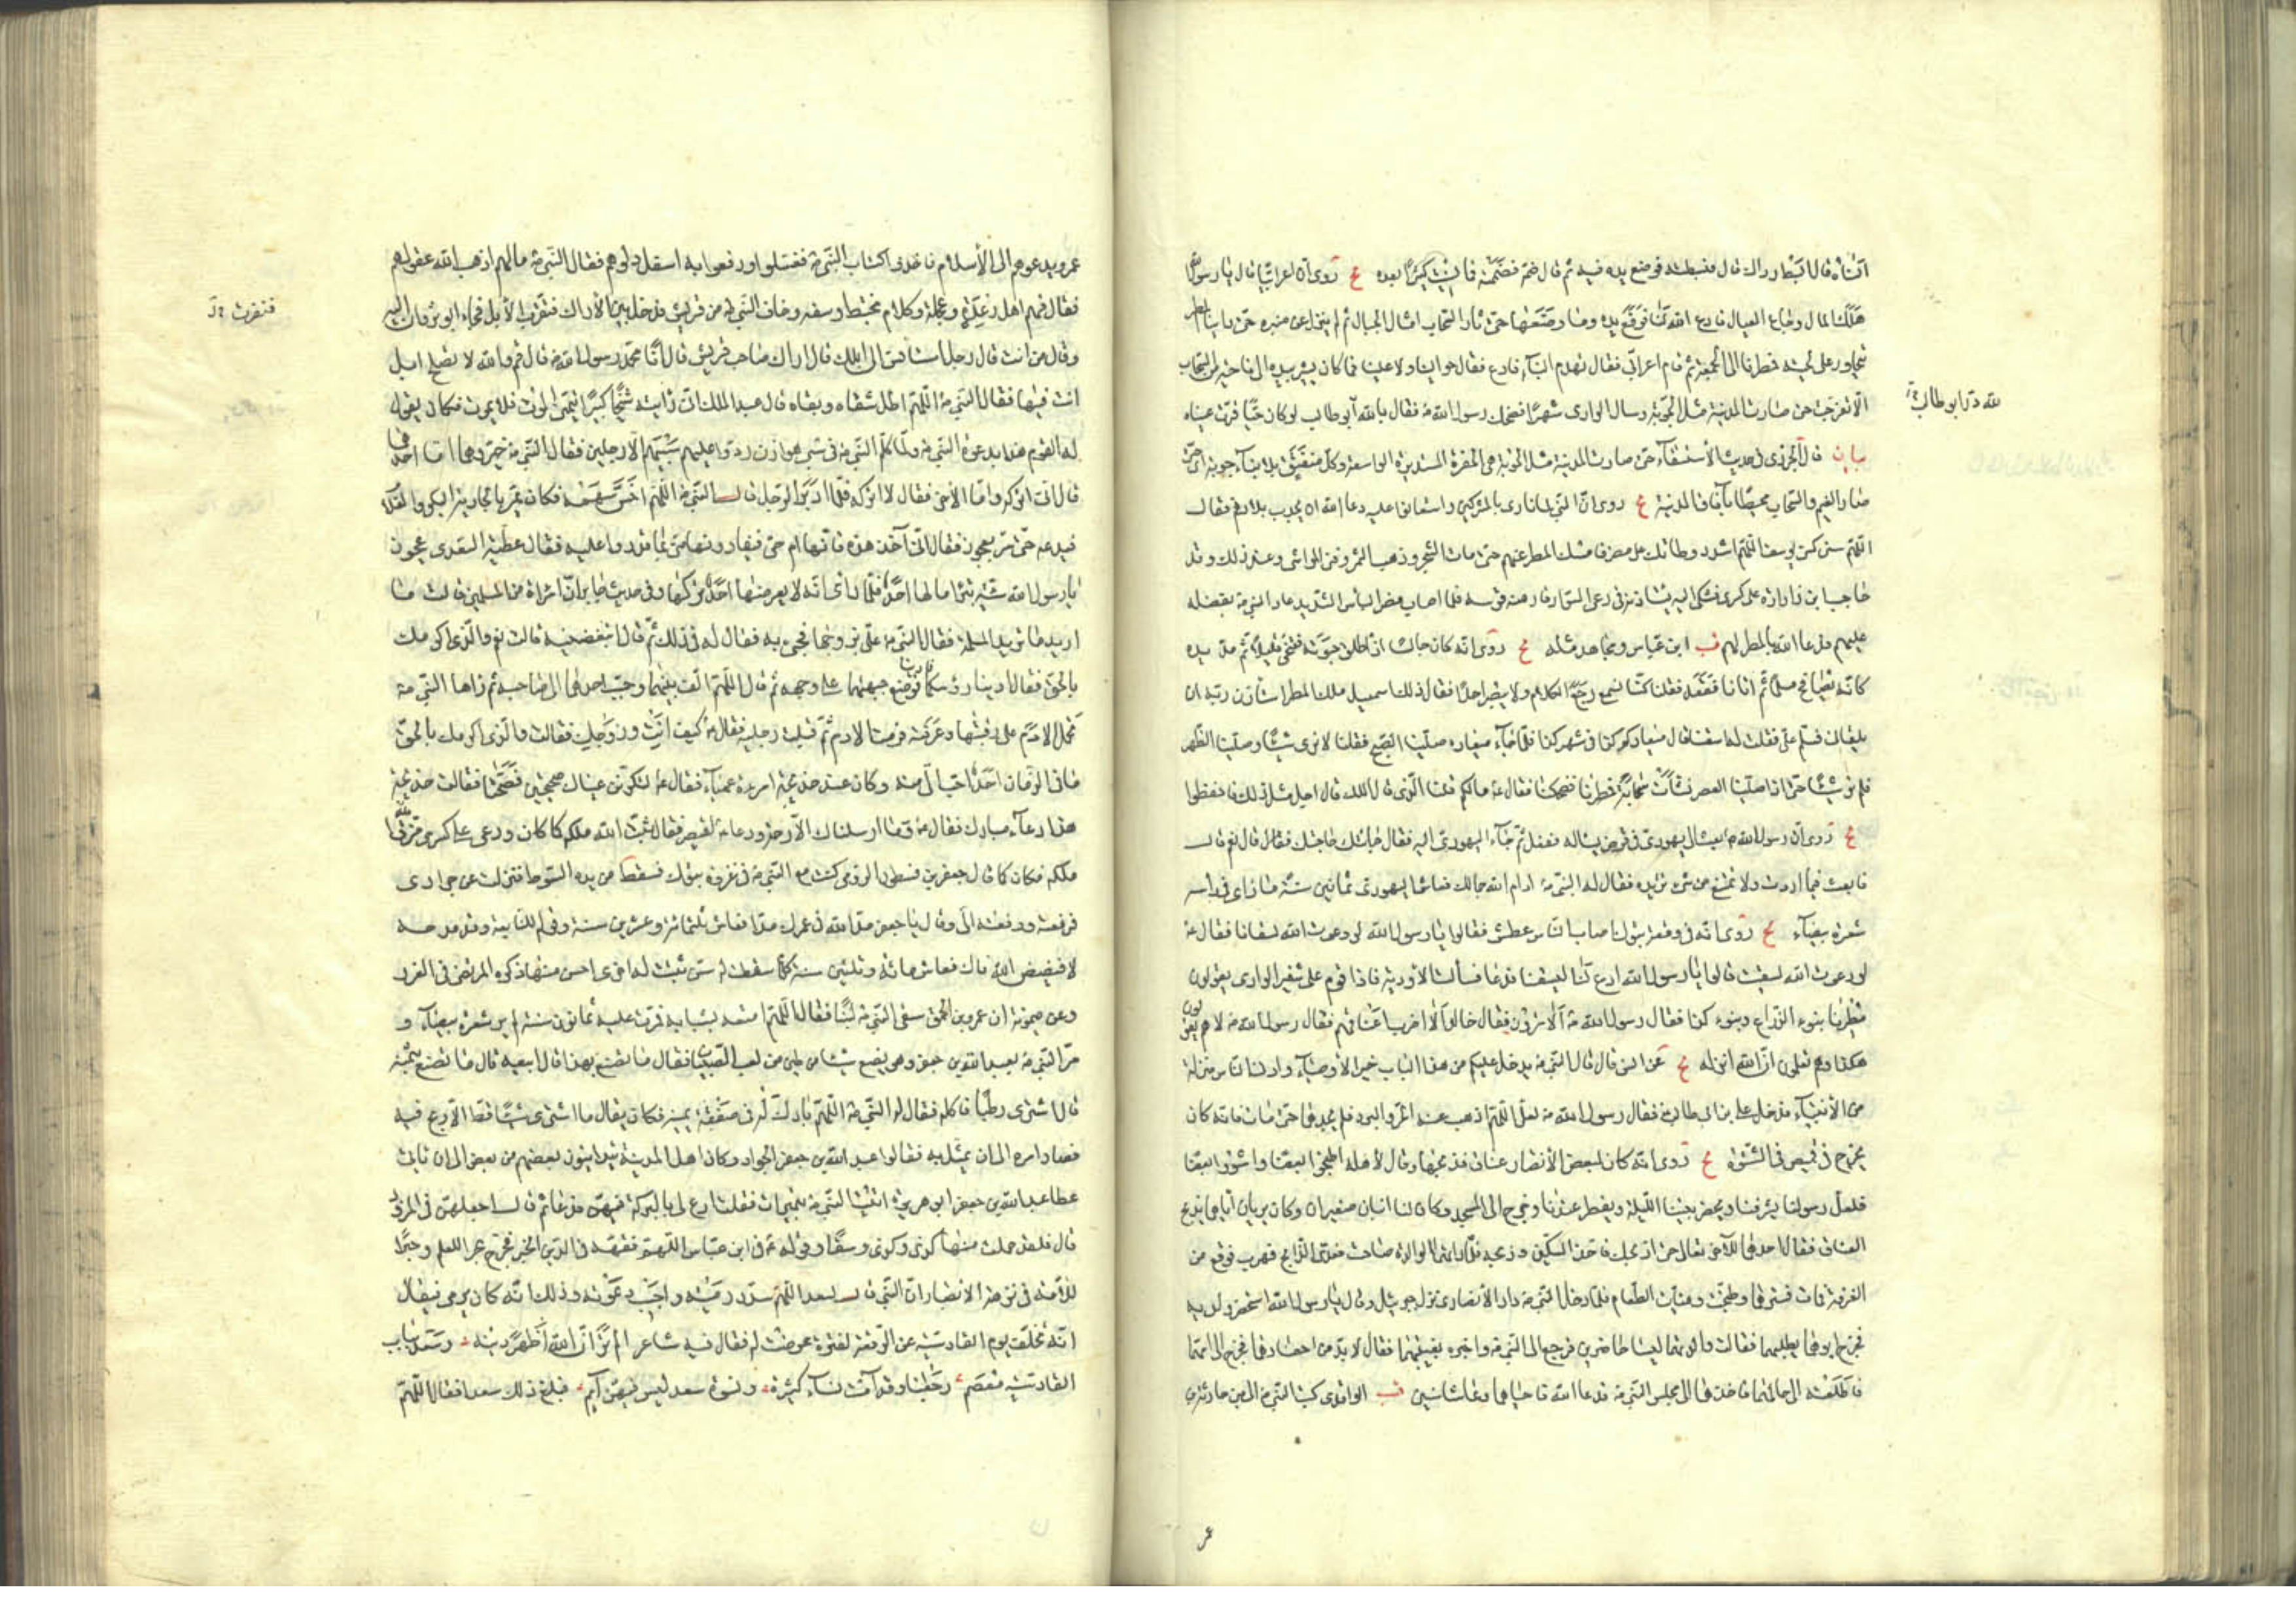 انساه فقال ابسط رداك قال فبسطته فوضع يده فيه ثم قال ضمه فضممته فما نسيت كثيرا بعده يج روى ان اعرابيا قال يا رسول الله
هلك المال وجاع العيال فادع الله لنا فرفع يده وما وضعها حتى ثار السحاب امثال الجبال ثم لم ينزل عن منبره حتى راينا المطر
يتحادر على لحيته فمطرنا الى الجمعة ثم قام اعرابي فقال تهدم البناء فادع فقال حوالينا ولا علينا فما كان يشير بيده الى ناحية من السحاب
الا تفرجت حتى صارت المدينة مثل الجوبة وسال الوادى شهرا فضحك رسول الله ص فقال لله در ابو طالب لو كان حيا قرت عيناه
لله در ابو طالب
بيان قال الجزرى فى حديث الاستسقاء حتى صارت المدينة مثل الجوبة هى الحفرة المستديرة الواسعة وكل منفتق بلا بناء جوبة اى حتى
صار الغيم والسحاب محيطا بآفاق المدينة يج روى ان النبى لما نادى بالمشركين واستعانوا عليه دعا الله ان يجدب بلادهم فقال
اللهم سنين كسنى يوسف اللهم اشدد وطاتك على مضر فامسك المطر عنهم حتى مات الشجر وذهب الثمر وفنى المواشى وعند ذلك وفد
حاجب بن زرارة على كسرى فشكى اليه يستاذنه فى رعى السواد فارهنه قوسه فلما اصاب مضر الباس الشديد عاد النبى ص بفضله
عليهم فدعا الله بالمطر لهم قب ابن عباس ومجاهد مثله يج روى انه كان جالسا اذ اطلق حبوته فتنحى قليلا ثم مد يده
كانه يصافح مسلما ثم اتانا فقعد فقلنا كنا نسمع رجع الكلام ولا نبصر احدا فقال ذلك اسمعيل ملك المطر استاذن ربه ان
يلقانى فسلم على فقلت له اسقنا قال ميعادكم كذا فى شهر كذا فلما جاء ميعاده صلينا الصبح فقلنا لا نرى شيئا وصلينا الظهر
فلم نر شيئا حتى اذا صلينا العصر نشأت سحابة فمطرنا فضحكنا فقال ص مالكم قلنا الذى قال الملك قال اجل مثل ذلك فاحفظوا
يج روى ان رسول الله ص بعث الى يهودى فى قرض يساله ففعل ثم جاء اليهودى اليه فقال جاءتك حاجتك فقال قال نعم قال
فابعث فيما اردت ولا تمتنع من شئ تريده فقال له النبى ص ادام الله جمالك فعاش اليهودى ثمانين سنة ما راى فى راسه
شعرة بيضاء يج روى انه فى وقعة تبوك اصاب الناس عطش فقالوا يا رسول الله لو دعوت الله لسقانا فقال ص
لو دعوت الله لسقيت قالوا يا رسول الله ادع لنا ليسقنا فدعا فسالت الاودية فاذا قوم على شفير الوادى يقولون
مطرنا بنوء الذراع وبنوء كذا فقال رسول الله ص الا ترون فقال خالد الا اضرب اعناقهم فقال رسول الله ص لا هم يقولون
هكذا وهم يعلمون ان الله انزله يج عن انس قال قال النبى ص يدخل عليكم من هذا الباب خير الاوصياء وادنى الناس منزلة
من الانبياء فدخل على بن ابى طالب فقال رسول الله ص لعلى اللهم اذهب عنه الحر والبرد فلم يجدهما حتى مات فانه كان
يخرج فى قميص فى الشتاء يج روى انه كان لبعض الانصار عناق فذبحها وقال لاهله اطبخوا بعضا واشووا بعضا
فلعل رسولنا يشرفنا ويحضر بيتنا الليلة ويفطر عندنا وخرج الى المسجد وكان له ابنان صغيران وكانا يريان اباهما يذبح
العناق فقال احدهما للآخر تعال حتى اذبحك فاخذ السكين وذبحه فلما راتهما الوالدة صاحت فعدا الذابح فهرب فوقع من
الغرفة فمات فسترتهما وطبخت وهيات الطعام فلما دخل النبى ص دار الانصارى نزل جبرئيل وقال يا رسول الله استحضر ولديه
فخرج ابوهما يطلبهما فقالت والدتهما ليسا حاضرين فرجع الى النبى ص واخبره بغيبتهما فقال لا بد من احضارهما فخرج الى امهما
فاطلعته الى حالهما فاخذهما الى مجلس النبى ص فدعا الله فاحياهما وعاشا سنين قب الواقدى كتب النبى ص الى بنى حارثة بن
عر
عمرو يدعوهم الى الاسلام فاخذوا كتاب النبى ص فغسلوه ورقعوا به اسفل دلوهم فقال النبى ص مالهم اذهب الله عقولهم
فقال فهم اهل رعدة وعجلة وكلام مختلط وسفه وخاف النبى ص من قريش فدخل بين الاراك فنفرت الابل فجاء ابو ثروان اليه
فنفرت
وقال من انت قال رجل استانس الى ابلك قال اراك صاحب قريش قال انا محمد رسول الله قال قم والله لا تصلح ابل
انت فيها فقال النبى ص اللهم اطل شقاه وبقاه قال عبد الملك انى رايته شيخا كبيرا يتمنى الموت فلا يموت فكان يقول
له القوم هذا بدعوة النبى ص ولما كلم النبى ص فى سبى هوازن ردوا عليهم سبيهم الا رجلين فقال النبى ص خيروهما اما احدهما
قال انى اتركه واما الآخر فقال لا اتركه فلما ادبر الرجل قال النبى ص اللهم اخس سهمه فكان يمر بالجارية البكر والغلام
فيدعه حتى مر بعجوز فقال انى آخذ هذه فانها ام حى فيفادونها منى بما قدروا عليه فقال عطية السعدى عجوز
يا رسول الله سبية بتراء مالها احد فلما راى انه لا يعرضها احد تركها وفى حديث جابر ان امراة من المسلمين قالت ما
اريد ما تريد المسلمة فقال النبى ص على بزوجها فجئ به فقال له فى ذلك ثم قال اتبغضينه قالت نعم والذى اكرمك
بالحق فقال ادنيا رؤسكما فوضع جبهتهما على وجهه ثم قال اللهم الف بينهما وحبب احدهما الى صاحبه ثم راها النبى ص
تحمل الادم على رقبتها وعرفته فرمت الادم ثم قبلت رجليه فقال ص كيف انت وزوجك فقالت والذى اكرمك بالحق
ما فى الزمان احد احب الى منه وكان عند خديجة امراة عمياء فقال ص لتكونن عيناك صحيحتين فصحتا فقالت خديجة
هذا دعاء مبارك فقال ص وما ارسلناك الا رحمة ودعا ص لقيصر فقال ثبت الله ملكه كما كان ودعى على كسرى مزق الله
ملكه فكان كما قال جعفر بن نسطور الرومى كنت مع النبى ص فى غزوة تبوك فسقط من يده السوط فنزلت عن جوادى
فرفعته ودفعته اليه وقال يا جعفر مد الله فى عمرك مدا فعاش ثلثمائة وعشرين سنة وقوله للنابغة وقد مدحه
لا يفضض الله فاك فعاش مائة وثلثين سنة كلما سقطت له سن نبتت له اخرى احسن منها ذكره المرتضى فى الغرر
وعن ميمونة ان عمرو بن الحمق سقى النبى ص لبنا فقال اللهم امتعه بشبابه فمرت عليه ثمانون سنة لم ير شعرة بيضاء و
مر النبى ص بعبد الله بن جعفر وهو يصنع شيئا من طين من لعب الصبيان فقال ما تصنع بهذا قال ابيعه قال ما تصنع بثمنه
قال اشترى رطبا فاكله فقال له النبى ص اللهم بارك له فى صفقة يمينه فكان يقال ما اشترى شيئا قط الا ربح فيه
فصار امره الى ان يمثل به فقالوا عبد الله بن جعفر الجواد وكان اهل المدينة يتداينون بعضهم من بعض الى ان ياتى
عطا عبد الله بن جعفر ابو هريرة اتيت النبى ص بتميرات فقلت ادع لى بالبركة فيهن فدعا ثم قال اجعلهن فى المزود
قال فلقد حملت منها كذا وكذا وسقا وقوله ص فى ابن عباس اللهم فقهه فى الدين الخبر فخرج بحر العلم وحبرا
للامة فى نزهة الابصار ان النبى قال لسعد اللهم سدد رميته واجب دعوته وذلك انه كان يرمى فيقال
انه تخلف يوم القادسية عن الوقعة لفترة عرضت له فقال فيه شاعر الم تر ان الله اظهر دينه وسعد بباب
القادسية معصم رجعنا وقد آمت نساء كثيرة ونسوة سعد ليس فيهن ايم فبلغ ذلك سعدا فقال اللهم